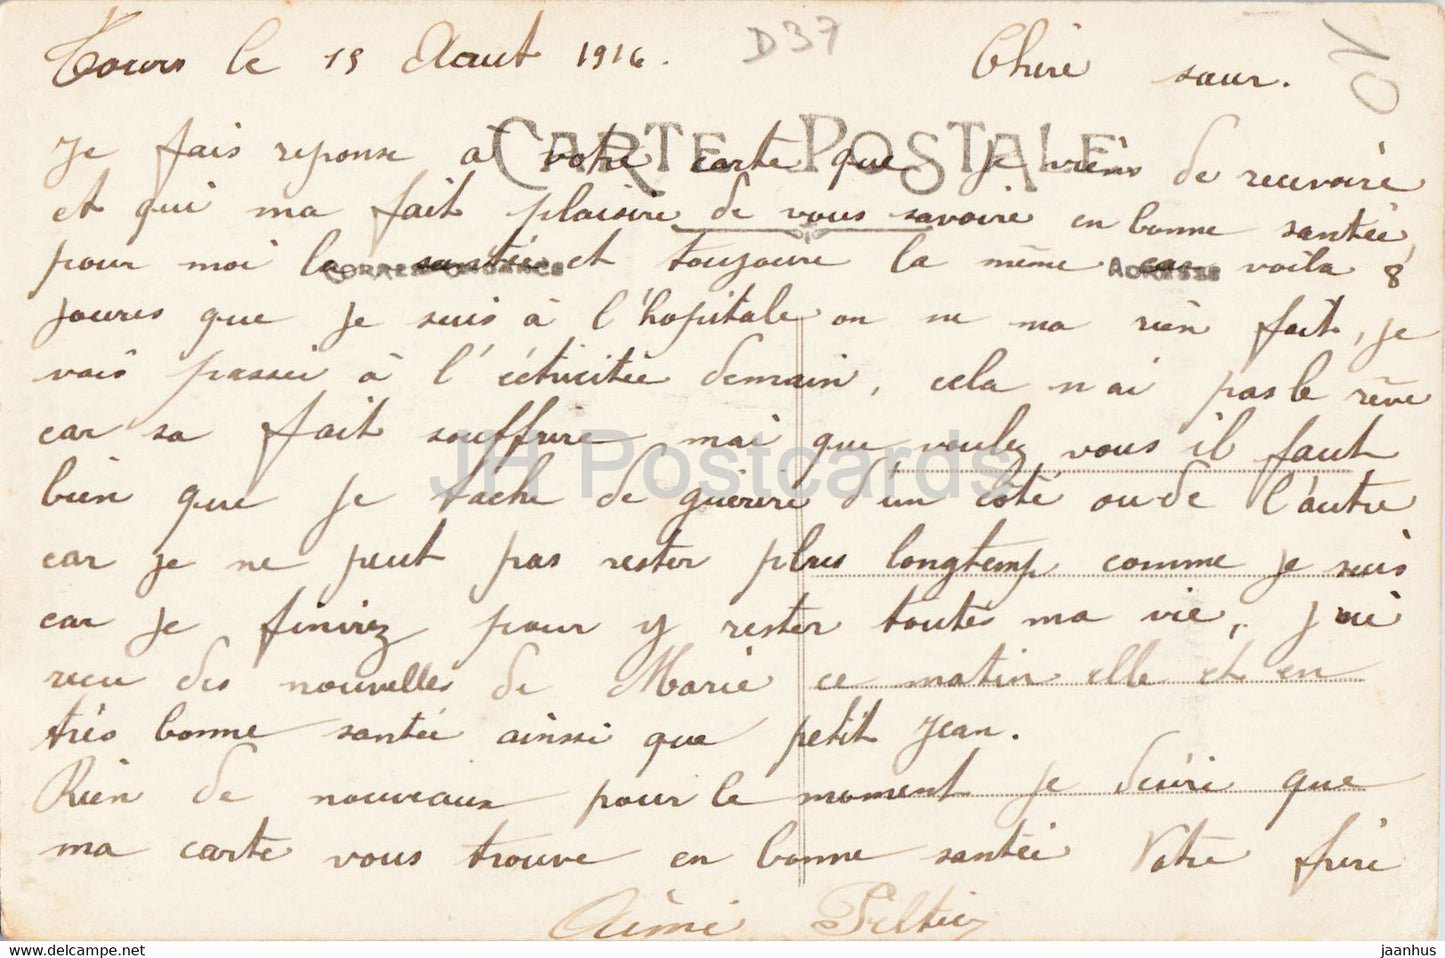 Tours le 19 Aout 1916. D37 Chère sœur. 10
CARTE POSTALE
Je fais reponse a votre carte que je viens de recevoire
et qui ma fait plaisire de vous savoire en bonne santée,
pour moi la santée et toujoure la même car voila 8
CORRESPONDANCE ADRESSE
joures que je suis à l'hopitale on ne ma rien fait, je
vais passer à l'éctricitée demain, cela n'ai pas le rêve
car sa fait souffrire mai que voulez vous il faut
bien que je tache de guérire d'un côté ou de l'autre
car je ne peut pas rester plus longtemp comme je suis
car je finirez pour y rester toutes ma vie, j'ai
recu des nouvelles de Marie ce matin elle et en
très bonne santée ainssi que petit Jean.
Rien de nouveaux pour le moment je désire que
ma carte vous trouve en bonne santée Votre frère
Aimé Peltier
JH Postcards
www.delcampe.net
jaanhus